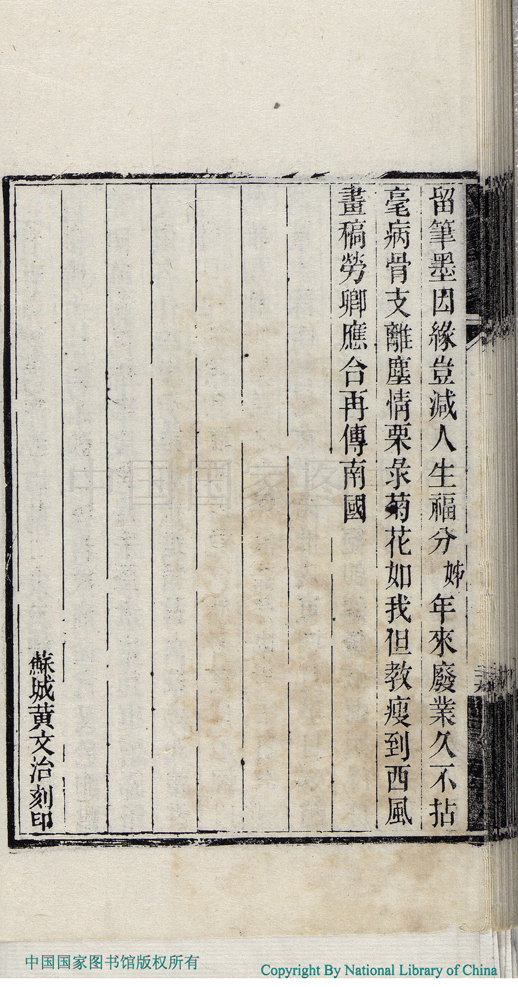 留筆墨因緣豈減人生福分姊年來廢業久不拈
毫病骨支離塵情栗彔菊花如我但教瘦到西風
畫稿勞卿應合再傳南國
蘇城黃文治刻印
中国国家图
中国国家图书馆版权所有
Copyright By National Library of China